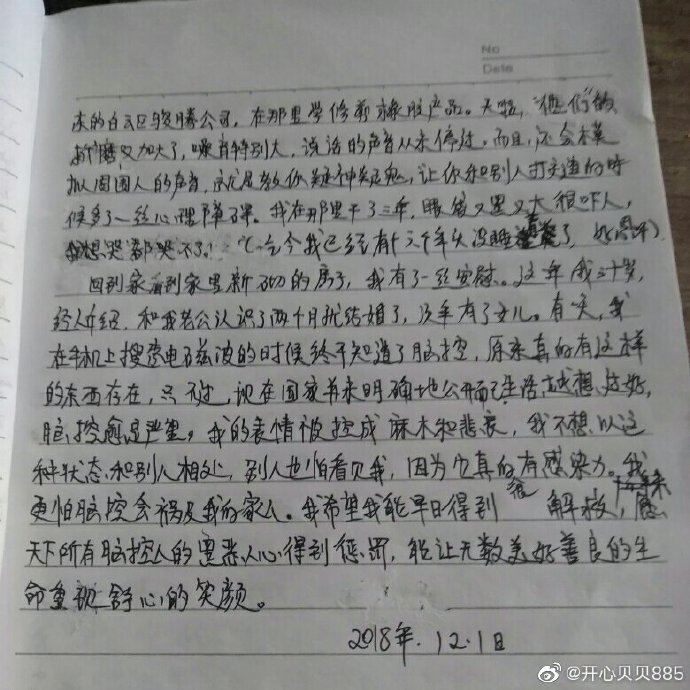 No
Date
东的白云区骏腾公司，在那里学修剪橡胶产品。天啦，“他们”的
折磨又加大了，噪音特别大，说话的声音从未停过。而且，还会模
拟周围人的声音，就是教你疑神疑鬼，让你和别人打交道的时
候多了一丝心理障碍。我在那里干了三年，眼袋又黑又大很吓人，
想哭都哭不了！（至今我已经有十六个年头没睡着觉了，
回到家看到家里新砌的房子，我有了一丝安慰。这年我三十岁，
经人介绍，和我老公认识了两个月就结婚了，次年有了女儿。有天，我
在手机上搜索电磁波的时候终于知道了脑控，原来真的有这样
的东西存在，只不过，现在国家并未明确地公开而已生活越想过好，
脑控愈是严重。我的表情被控成麻木和悲哀，我不想以这
种状态和别人相处，别人也怕看见我，因为它真的有感染力。我
更怕脑控会祸及我的家人。我希望我能早日得到解救，愿
天下所有脑控人的邪恶人心得到惩罚，能让无数美好善良的生
命重现舒心的笑颜。
2018年.12.1日
@开心贝贝885